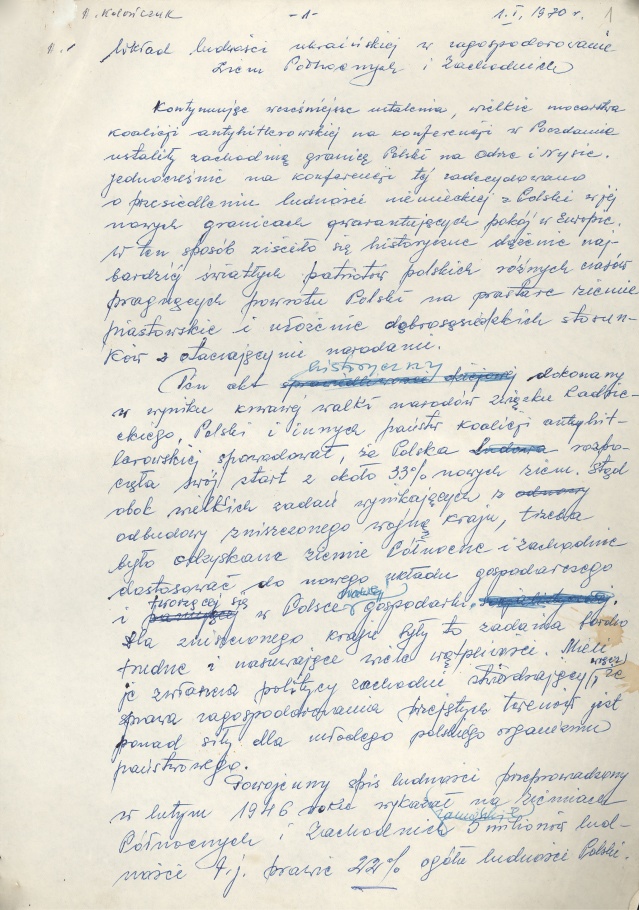 M. Kołończuk -1- 1.I.1970 r. 1
Wkład ludności ukraińskiej w zagospodarowanie
Ziem Północnych i Zachodnich
Kontynuując wcześniejsze ustalenia, wielkie mocarstwa
koalicji antyhitlerowskiej na konferencji w Poczdamie
ustaliły zachodnią granicę Polski na Odrze i Nysie.
Jednocześnie na konferencji tej zadecydowano
o przesiedleniu ludności niemieckiej z Polski w jej
nowych granicach gwarantujących pokój w Europie.
W ten sposób ziściło się historyczne dążenie naj-
bardziej światłych patriotów polskich różnych czasów
pragnących powrotu Polski na prastare ziemie
piastowskie i ułożenie dobrosąsiedzkich stosun-
ków z otaczającymi narodami.
historyczny
Ten akt dokonany
w wyniku krwawej walki narodów Związku Radzie-
ckiego, Polski i innych państw koalicji antyhit-
lerowskiej spowodował, że Polska Ludowa rozpo-
częła swój start z około 33% nowych ziem. Stąd
obok wielkich zadań wynikających z odnowy
odbudowy zniszczonego wojną kraju, trzeba
było odzyskane ziemie Północne i Zachodnie
dostosować do nowego układu gospodarczego
tworzącej się nowej
i w Polsce gospodarki.
Dla zniszczonego kraju były to zadania bardzo
trudne i nasuwające wiele wątpliwości. Mieli
je zwłaszcza politycy zachodni stwierdzający wręcz, że
sprawa zagospodarowania przejętych terenów jest
ponad siły dla młodego polskiego organizmu
państwowego.
Powojenny spis ludności przeprowadzony
w lutym 1946 roku wykazał na Ziemiach
Północnych i Zachodnich 5 milionów lud-
ności t.j. prawie 22% ogółu ludności Polski.